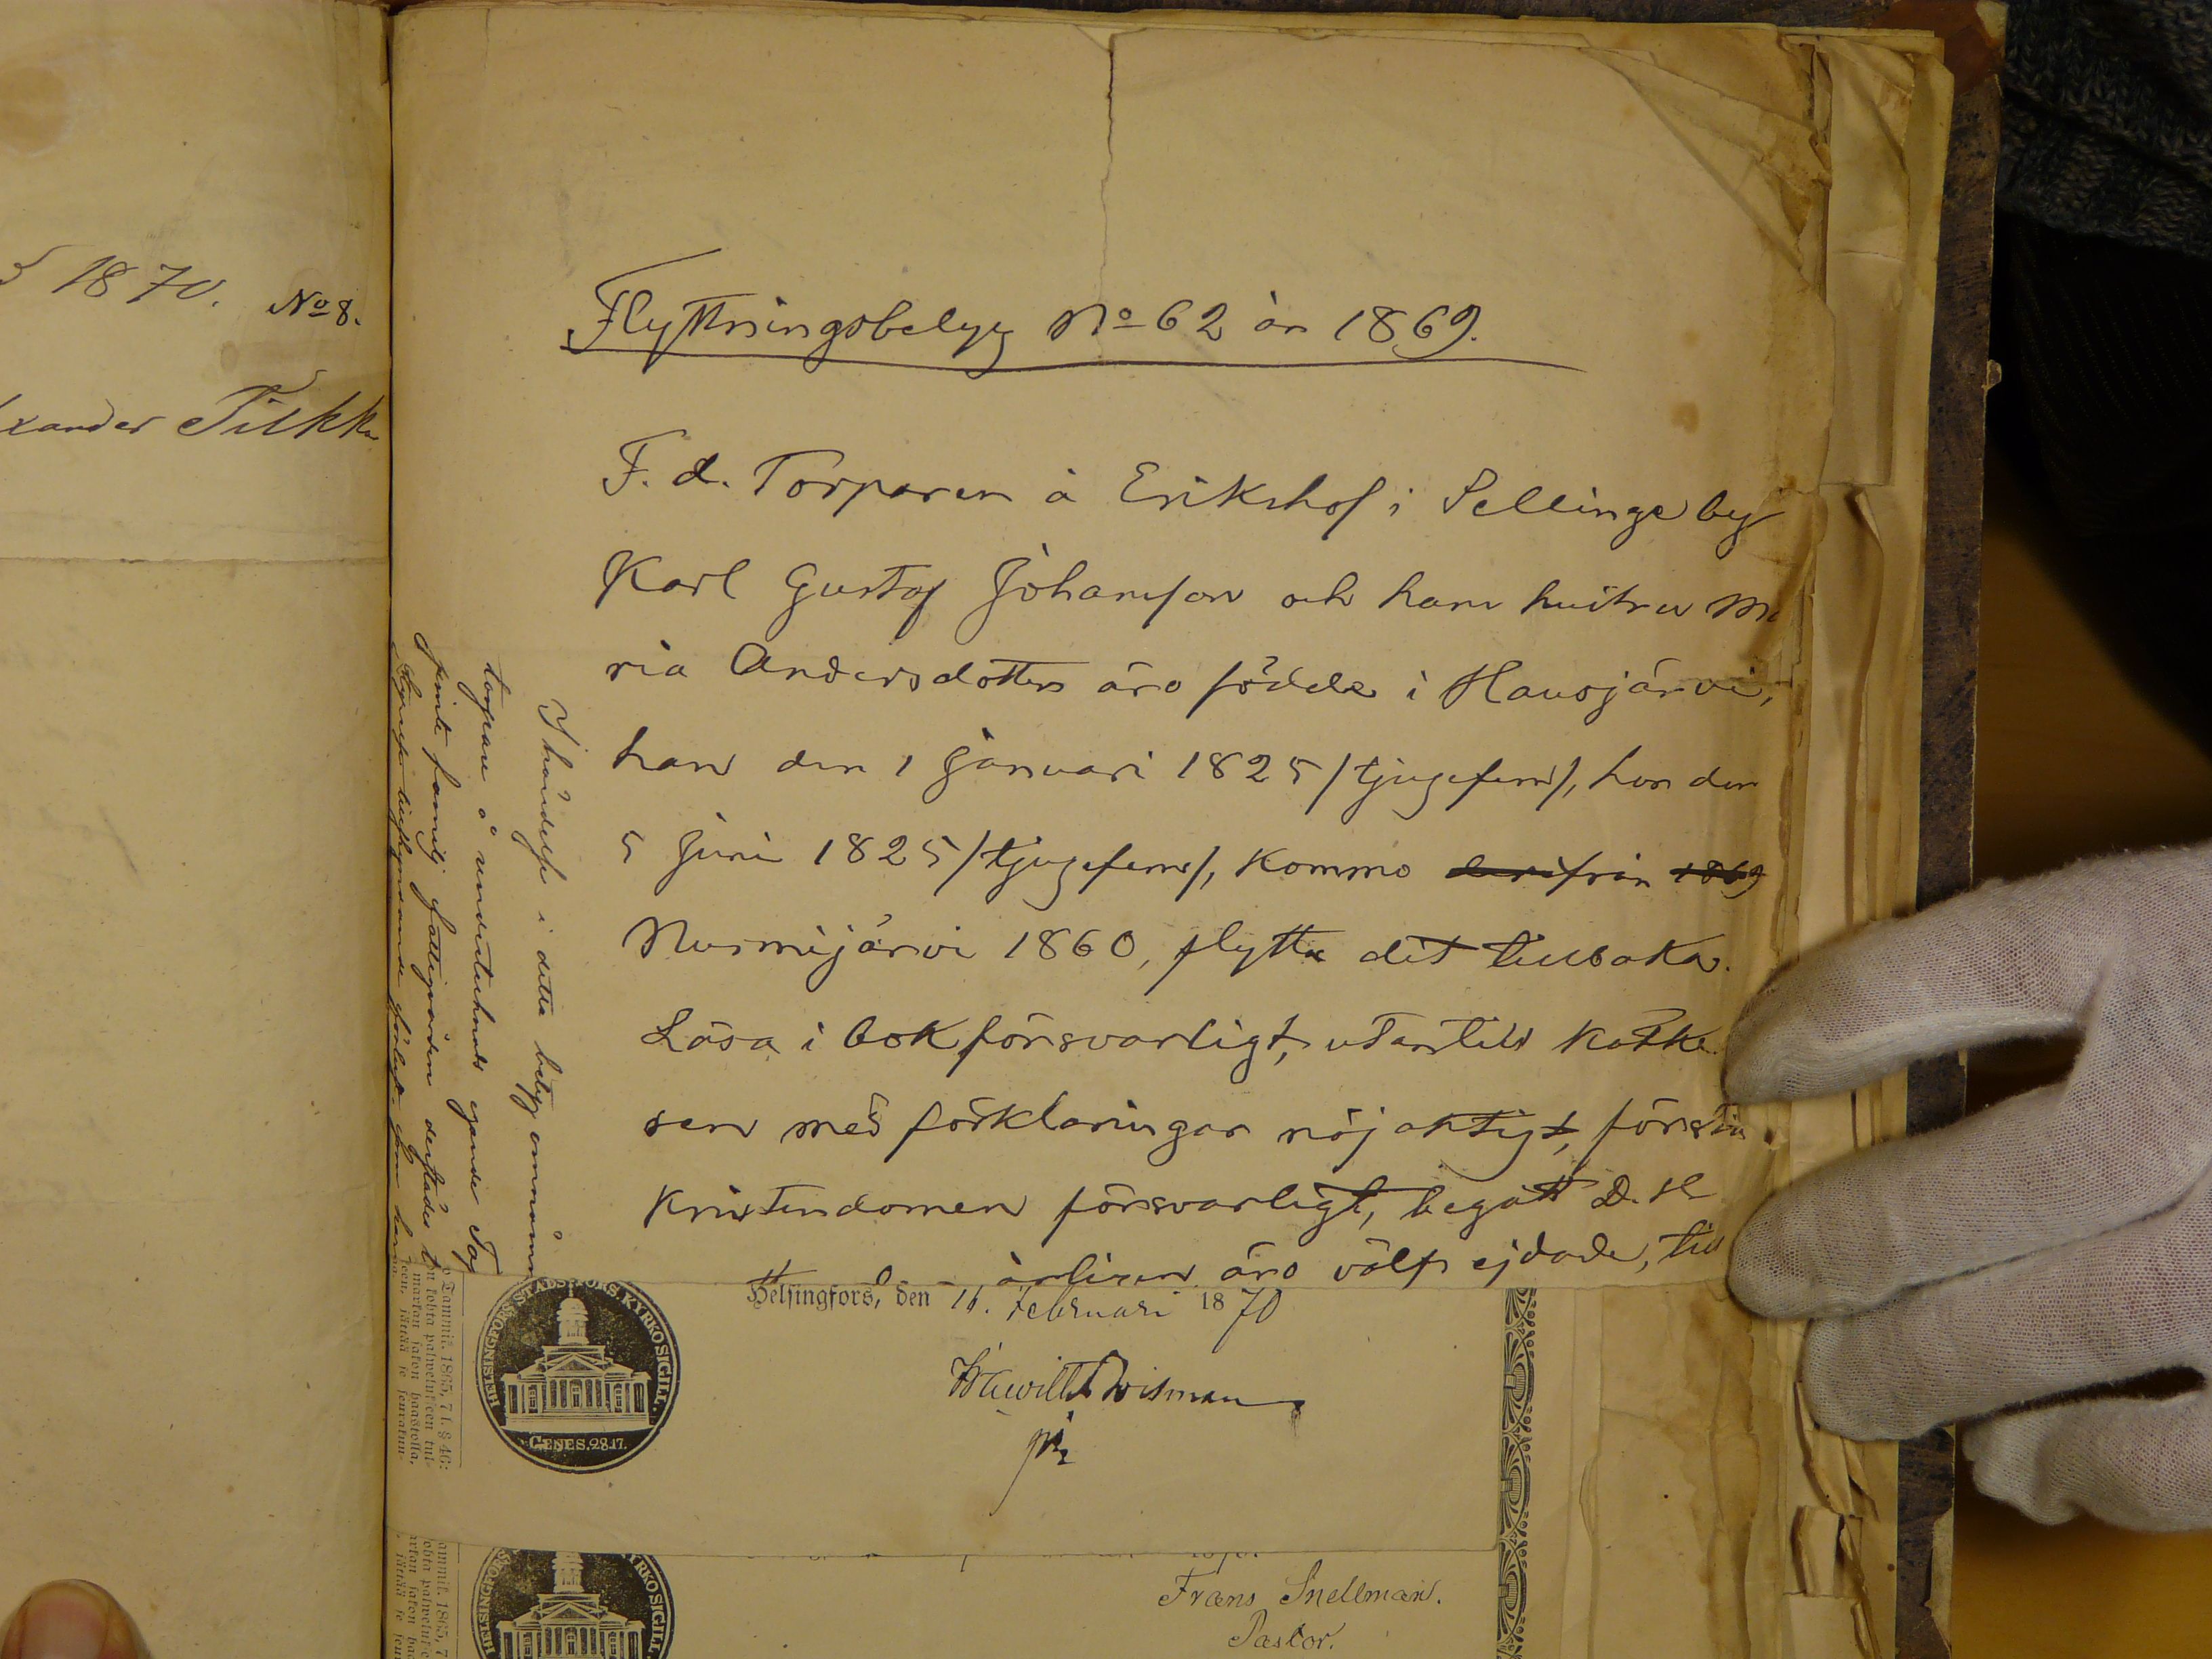 1870. No 8.
xander Tilkka
Flyttningsbetyg No 62 år 1869.
F. d. Torparen å Erikshof i Sellinge by
Karl Gustaf Johansson och hans hustru Ma
ria Andersdotter äro födde i Hausjärvi,
han den 1 Januari 1825 /tjugefem/, hon den
5 Juni 1825 /tjugefem/, kommo derifrån 1869
Nurmijärvi 1860, flytta dit tillbaka.
Läsa i bok försvarligt, utantill katke
sen med förklaringar nöjaktigt, förstå
kristendomen försvarligt, begått D. H.
årligen äro välfrejdade, till
I händelse i detta betyg omnämn
torpare å undertecknads egande
jemte familj fattigvården derstädes
Helsingfors, den 16. Februari 1870
HELSINGFORS STADS KYRKOSIGILL.
GENES. 28.17.
Tammik. 1865, 7 l. § 46:
Frans Snellman.
Pastor.